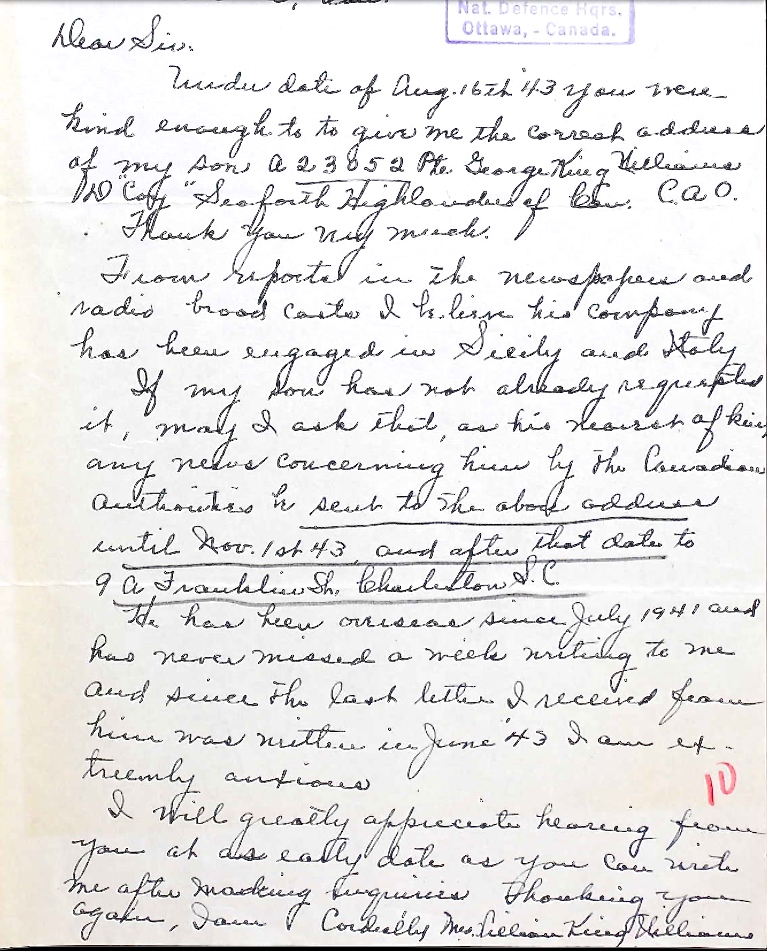 Nat. Defence Hqrs.
Ottawa, - Canada.
Dear Sir.
Under date of Aug. 16th '43 you were
kind enough to to give me the correct address
of my son A 23052 Pte. George King Williams
"D" Coy "Seaforth Highlanders of Can. C.A.O.
Thank you very much.
From reports in the newspapers and
radio broad casts I believe his company
has been engaged in Sicily and Italy
If my son has not already requested
it, may I ask that, as his nearest of kin,
any news concerning him by the Canadian
authorities be sent to the above address
until Nov. 1st 43, and after that date to
9 A, Franklin St. Charleston S.C.
He has been overseas since July 1941 and
has never missed a week writing to me
and since the last letter I received from
him was written in June '43 I am ex-
treemly anxious
10
I will greatly appreciate hearing from
you at as early date as you can write
me after making inquiries Thanking you
again, I am Cordially Mrs. Lillian King Williams